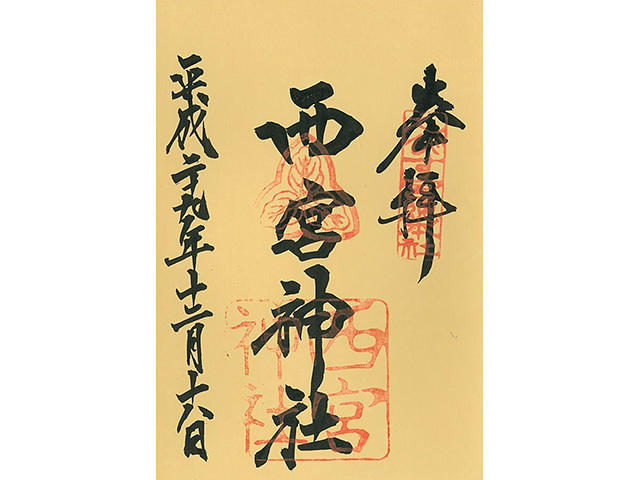 奉拝
西宮神社
平成二十九年十二月十六日
西宮
神社